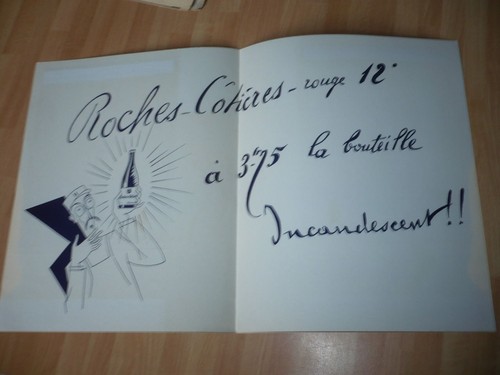 Roches-Côtières - rouge 12°
à 3frs75 la bouteille
Incandescent!!